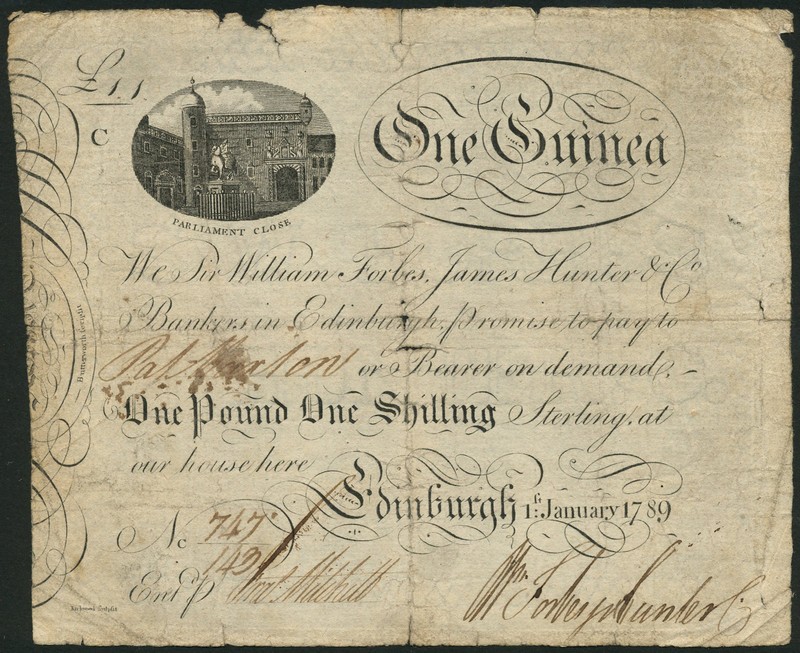 £1,,1
C
PARLIAMENT CLOSE
One Guinea
We Sir William Forbes, James Hunter & Co
Bankers in Edinburgh, promise to pay to
or Bearer on demand,
One Pound One Shilling Sterling, at
our house here
Edinburgh 1st January 1789
No 747
143
Entd p Mitchell
Wm Forbes J Hunter & Co
Butterworth script
sculpsit